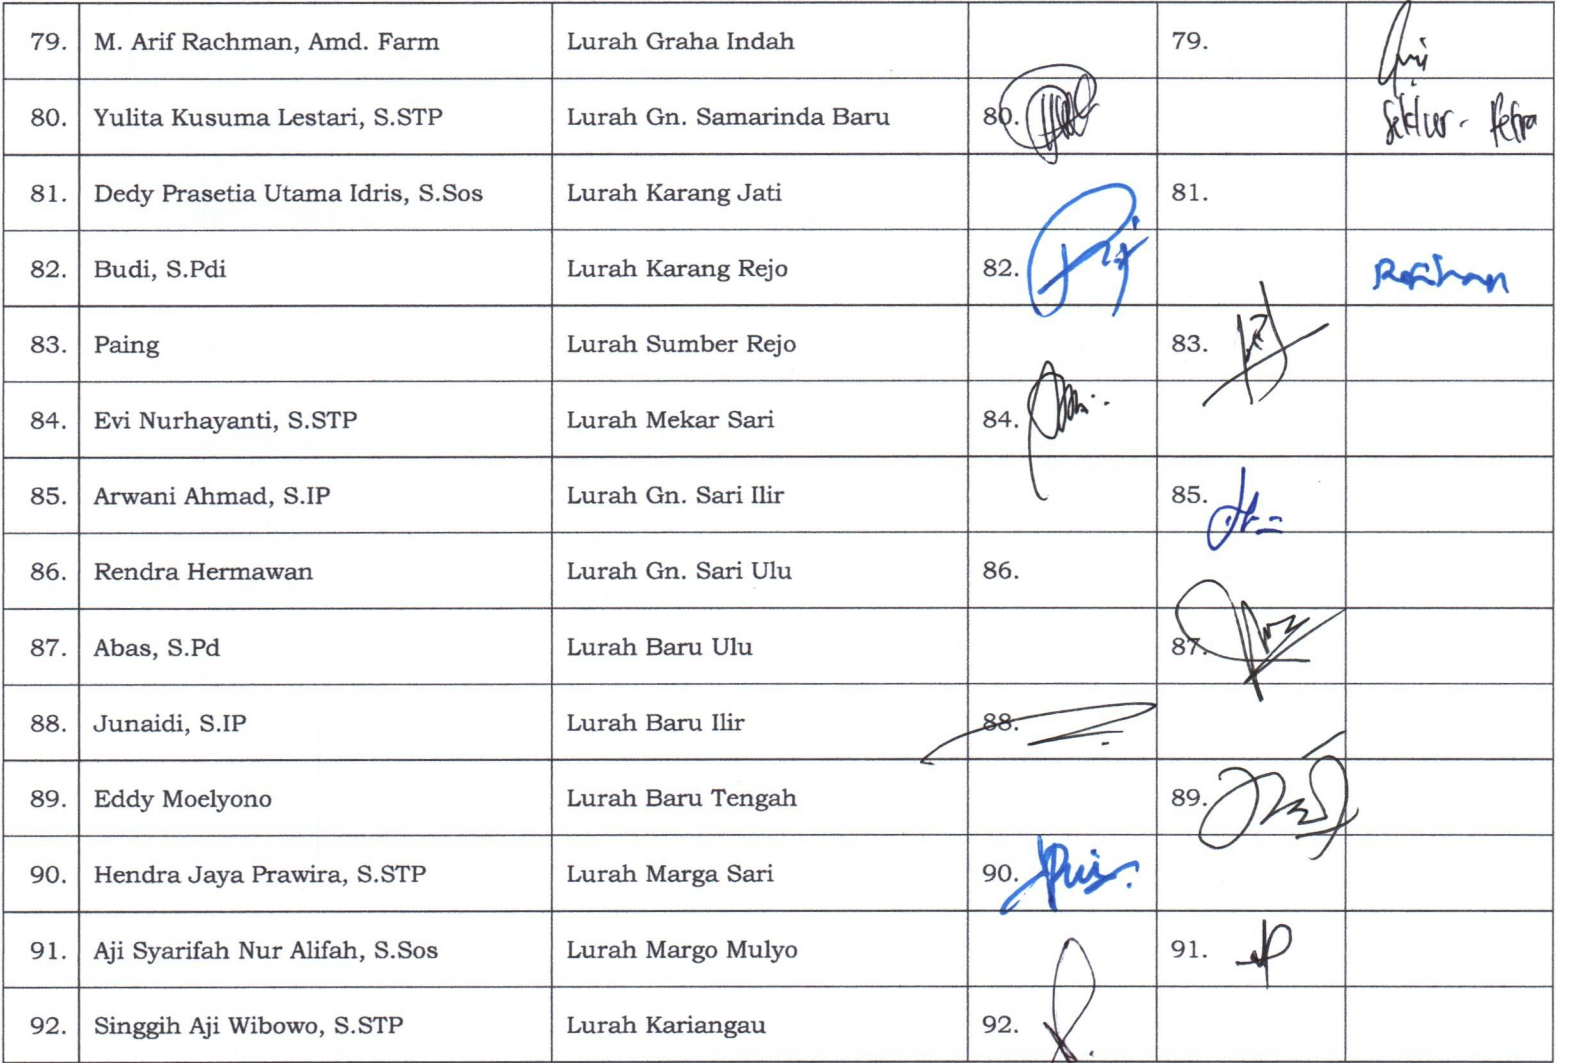 79. M. Arif Rachman, Amd. Farm Lurah Graha Indah 79.
80. Yulita Kusuma Lestari, S.STP Lurah Gn. Samarinda Baru 80.
81. Dedy Prasetia Utama Idris, S.Sos Lurah Karang Jati 81.
82. Budi, S.Pdi Lurah Karang Rejo 82.
83. Paing Lurah Sumber Rejo 83.
84. Evi Nurhayanti, S.STP Lurah Mekar Sari 84.
85. Arwani Ahmad, S.IP Lurah Gn. Sari Ilir 85.
86. Rendra Hermawan Lurah Gn. Sari Ulu 86.
87. Abas, S.Pd Lurah Baru Ulu 87.
88. Junaidi, S.IP Lurah Baru Ilir 88.
89. Eddy Moelyono Lurah Baru Tengah 89.
90. Hendra Jaya Prawira, S.STP Lurah Marga Sari 90.
91. Aji Syarifah Nur Alifah, S.Sos Lurah Margo Mulyo 91.
92. Singgih Aji Wibowo, S.STP Lurah Kariangau 92.